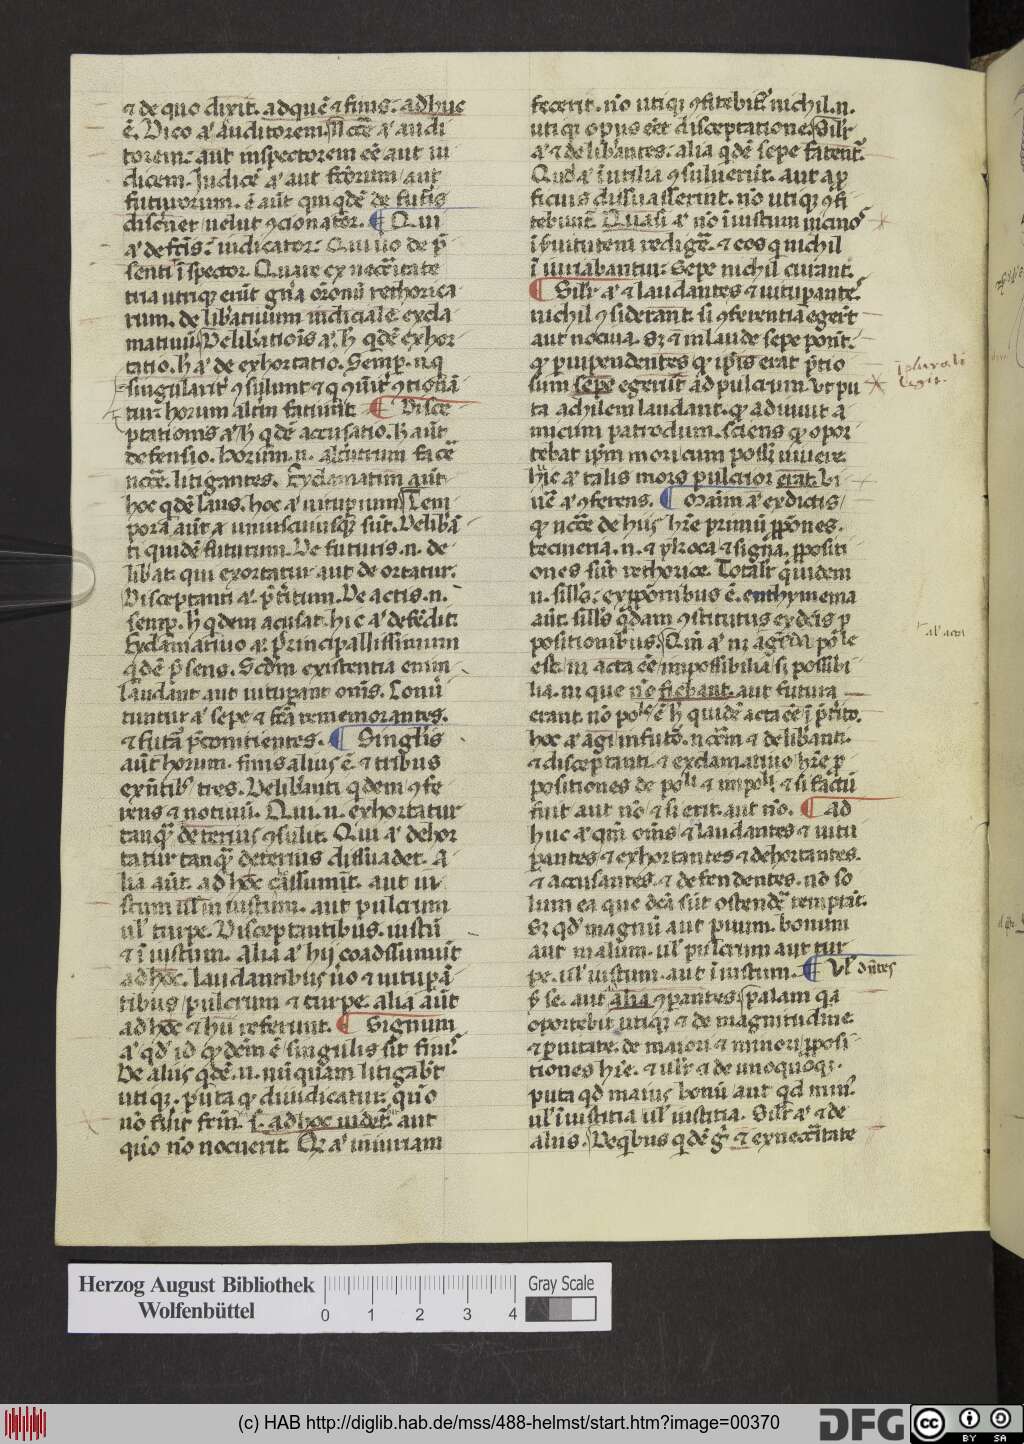 ⁊ de quo dixit. ad quē ⁊ finis. adhuc
ē. Dico aͭ auditorem. Nc̄c̄e aͭ audi
torem. aut inspectorem eē aut iu
dicem. Judicē aͭ aut fc̄orum aut
futurorum. ē aūt qui qͥdē de futͥs
discn̄et uelut ꝯcionator. ¶ Qui
aͭ de fc̄is. iudicator. Qui uo de p̄
senti īspector. Quare ex necc̄itate
tria utique erūt gn̄a or̄onū rethorica
rum. deliƀatiuum iudiciale excla
matiuū. Deliƀatiōis aͭ. h qͥdē exhor
tatio. h aͭ dehortatio. Semꝑ. n.
singularitͥ ꝯsulunt
tur horum altͥm faciūt. ¶ Disce
ptationis aͭ h qͥdē accusatio. h aūt
defensio. Horum. n. alterutrum facͤe
nc̄c̄e. litigantes. Exclamatiui aūt
hoc qͥdē laus. hoc aͭ uituꝑium. Tem
pora aūt uniuscuiusqꝫ sūt. Deliƀā
ti quidē futurum. De futuris. n. de
liƀat. qui exortatur aut deortatur.
Disceptanti aͭ. p̄tͥitum. De actis. n.
semꝑ. h qͥdem acusat. hic aͭ defēdit.
Exclamatiuo aͭ. principallissimum
qͥdē p̄sens. Scdm existentia enim
laudant aut uituꝑant om̄s. Conū
tuntur aͭ sepe ⁊ fc̄a rememorantes.
⁊ futͣa p̄conitientes. ¶ Singlͥis
aūt horum finis alius ē. ⁊ tribus
exn̄tibꝰ tres. Deliƀanti qͥdem ꝯfe
rens ⁊ nociuū. Qui. n. exhortatur
tanqͣ deterius ꝯsulit. Qui aͭ dehor
tatur tanqͣ deterius dissuadet. A
lia aūt. ad hoc assumūt. aut iu
stum ul̄ iniustum. aut pulcrum
ul̄ turpe. Disceptantibus. iustū
⁊ īiustum. Alia aͭ hii coadssumūt
ad hoc. Laudantibus uo ⁊ uituꝑā
tibus pulcrum ⁊ turpe. alia aūt
ad hoc ⁊ hii referunt. ¶ Signum
aͭ qđ id qđ dc̄m ē singulis sit finis.
De aliis qͥdē. n. nūquam litigabt̄
utiqꝫ. puta qđ diiudicatur quō
nō fuit fc̄m. ad hoc uidet̄. aut
quō nō nocuerit. Qꝫ aͭ iniuriam
fecerit. nō utiqꝫ ꝯfitebit̄. nichil. n.
utiqꝫ opus eēt disceptatione. Silr̄
aͭ ⁊ deliƀantes. alia qͥdē sepe fatent̄.
Qđ aͭ īutilia ꝯsuluerūt. aut a ꝓ
ficuis dissuasserint. nō utiqꝫ ꝯfi
tebunt̄. Quasi aͭ nō īiustum uicinoꝰ
ī ẜuitutem redigēꝫ. ⁊ eos qͥ nichil
īiuriabantur. Sepe nichil curant.
¶ Silr̄ aͭ ⁊ laudantes ⁊ uituꝑantes.
nichil ꝯsiderant. si ꝯferentia egerīt
aut nociua. Sꝫ ⁊ ī laude sepe ponūt.
qđ puipendentes qđ ipsis erat p̄tio
sum sepe egerūt ad pulcrum. Ut pu
ta achilem laudant. qđ adiuuit a
micum patrodum. sciens qđ opor
tebat ipm̄ mori cum possꝫ uiuere.
hͥic aͭ talis mors pulcrior erat. Vi
uē aͭ ꝯferens. ¶ Manīm aͭ ex dictis
qđ nc̄c̄e de hiis hr̄e primū ꝓpōnes.
tecmeria. n. ⁊ ykoca ⁊ signa. ꝓpositi
ones sūt rethorice. Totalr̄ quidem
n. sills̄. ex ꝓpōnibus ē. enthymema
aūt. sills̄ qͥdam ꝯstitutus ex dc̄is ꝓ
positionibus. Cum aͭ ni agͥ
est. ni acta eē impossibilia. si possibi
lia. ni que nō fiebant. aut futura
erant. nō posͥ ē h quidē acta eē ī p̄tͥito.
hoc aͭ agi in futō. nc̄c̄m ⁊ deliƀanti.
⁊ disceptanti. ⁊ exclamatiuo hr̄e ꝓ
positiones de poͥli ⁊ impoͥli. ⁊ si factū
fuit aut nō ⁊ si erit. aut nō. ¶ Ad
huc aͭ qm̄ om̄s ⁊ laudantes ⁊ uitu
ꝑantes ⁊ exhortantes ⁊ dehortantes.
⁊ accusantes. ⁊ defendentes. nō so
lum ea que dc̄a sūt ostendē temptāt.
Sꝫ qđ magnū aut pium. bonum
aut malum. ul̄ pulcrum aut tur
pe. ul̄ iustum. aut īiustum. ¶ Ul̄ dn̄tes
ꝑ se. aut alia ꝯparantes. palam qͣ
oportebit utiqꝫ ⁊ de magnitudine
⁊ ꝑuitate. de maiori ⁊ minori ꝓposi
tiones hr̄e. ⁊ ulr̄ ⁊ de unoquoqꝫ.
puta qđ maius bonū aut qđ minꝰ
ul̄ īiustitia ul̄ iustitia. Silr̄ aͭ ⁊ de
aliis. De qͥbus qͥdē gͦ ⁊ ex necc̄itate
ī plurali
legit.
al' acta
Herzog August Bibliothek
Wolfenbüttel
0 1 2 3 4
Gray Scale
(c) HAB http://diglib.hab.de/mss/488-helmst/start.htm?image=00370
DFG
cc BY SA